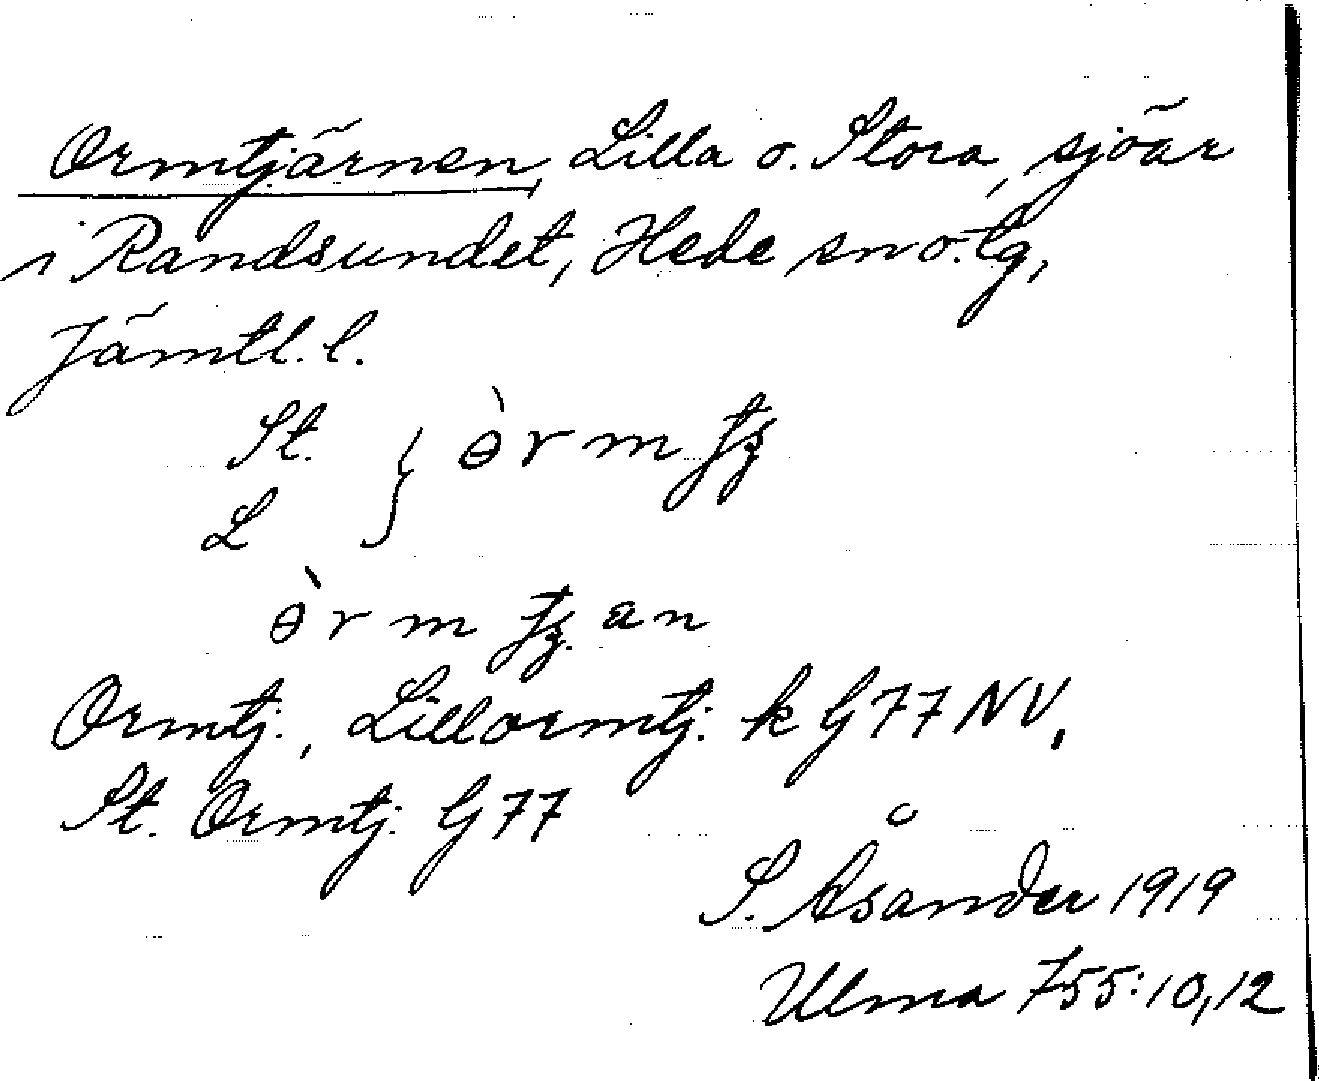 Ormtjärnen, Lilla o. Stora, sjöar
i Randsundet, Hede sn o. tg,
Jämtl. l.
St.
L
Ormtj., Lillormtj. k G77 NV,
St. Ormtj. G77
S. Åsander 1919
Ulma 755:10,12